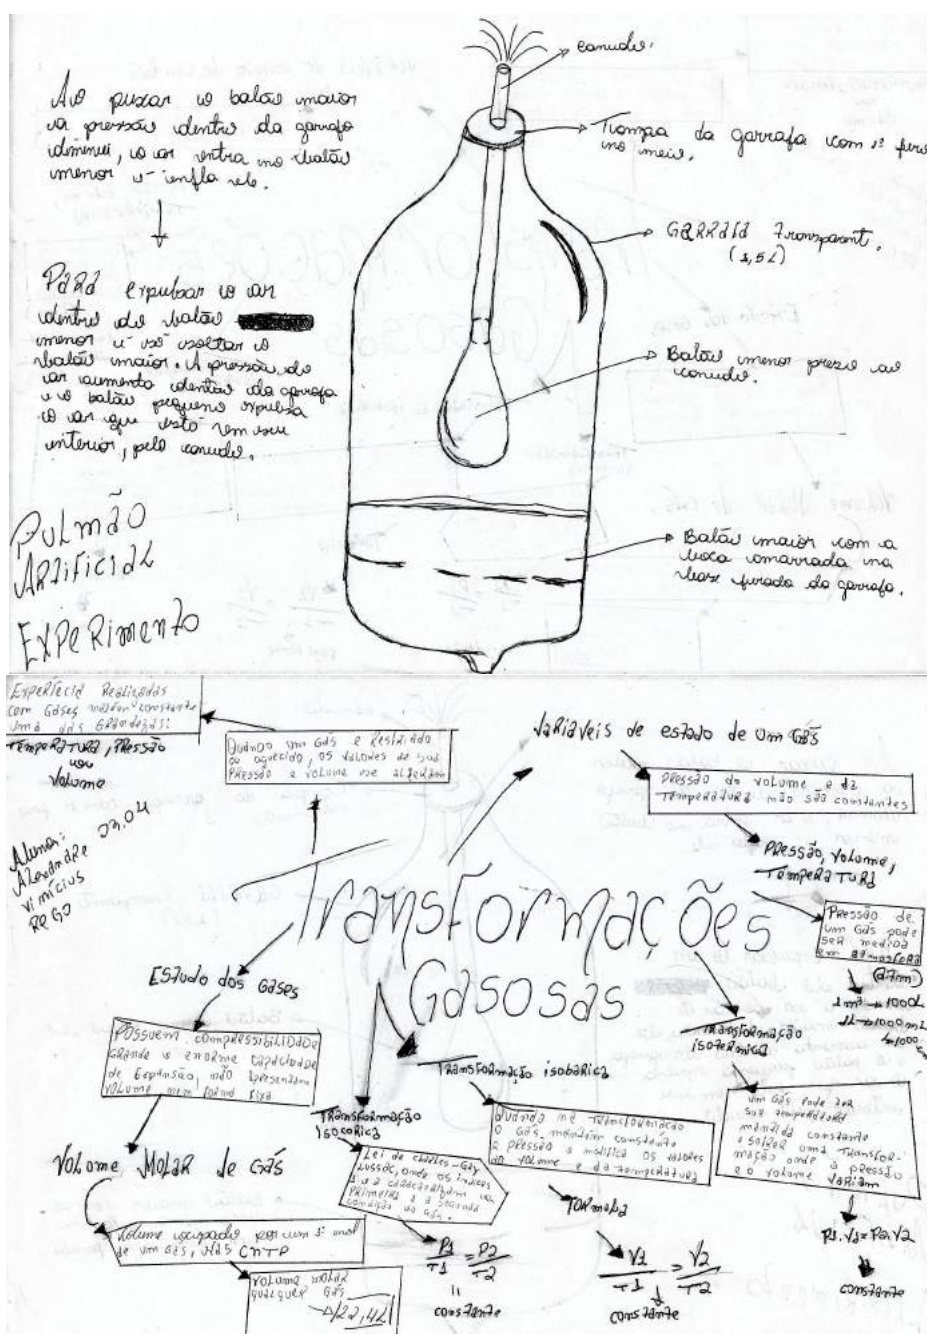 canudo.
Ao puxar o balão maior
a pressão dentro da garrafa
diminui, o ar entra no balão
menor e infla ele.
Tampa da garrafa com 1 furo
no meio.
GARRAFA transparent.
(1,5L)
PARA expulsar o ar
dentro do balão
menor é só soltar o
balão maior. A pressão do
ar aumenta dentro da garrafa
e o balão pequeno expulsa
o ar que está em seu
interior, pelo canudo.
Balão menor preso ao
canudo.
Balão maior com a
boca amarrada na
base furada da garrafa.
PULMÃO
ARTIFICIAL
EXPERIMENTO
Experiêcia Realizadas
com Gases mantém constante
uma das GRANDEZAS:
TEMPERATURA, PRESSÃO
ou
Volume
Quando um Gás é Resfriado
ou aquecido, os valores de sua
PRESSÃO e volume se alteram
Variáveis de estado de um Gás
PRESSÃO do volume e da
TEMPERATURA não são constantes
PRESSÃO, volume,
TEMPERATURA
PRESSÃO de
um Gás pode
ser medida
em atmosfera
(atm)
1 m³ → 1000L
1L → 1000 mL
Aluno:
Alexandre
Vinícius
Rego
Transformações
Gasosas
ESTUDO dos GASES
POSSUEM COMPRESSIBILIDADE
GRANDE e enorme capacidade
de Expansão, não apresentam
volume nem forma fixa
VOLUME MOLAR de GÁS
Volume ocupado por um 1 mol
de um Gás, NAS CNTP
VOLUME MOLAR
QUALQUER GÁS
22,4L
TRANSFORMAÇÃO
ISOCORICA
Lei de charles-Gay
Lussac, onde os índices
1 e 2 caracterizam a
PRIMEIRA e a segunda
condição do Gás.
P1/T1 = P2/T2
=
constante
TRANSFORMAÇÃO isobarica
Quando na TRANSFORMAÇÃO
o Gás mantém constante
a pressão e modifica os valores
do volume e da temperatura
FORMULA
V1/T1 = V2/T2
constante
TRANSFORMAÇÃO
isotermica
um Gás pode ter
sua temperatura
mantida constante
e sofrer uma TRANSFOR-
mação onde a pressão
e o volume VARIAM
P1.V1=P2.V2
constante